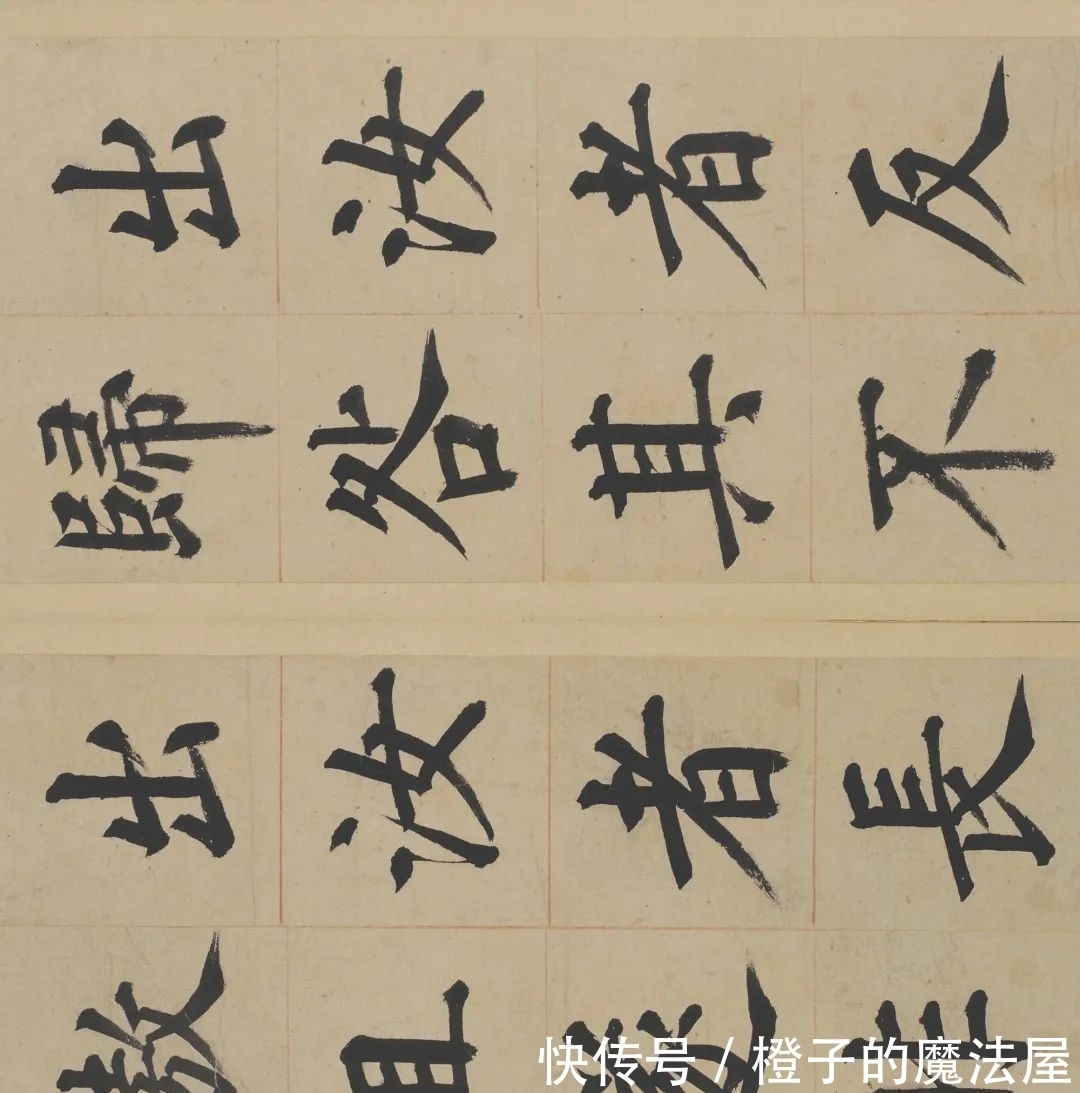 出汝者反
歸咎其不
出汝者長
快传号 / 橙子的魔法屋